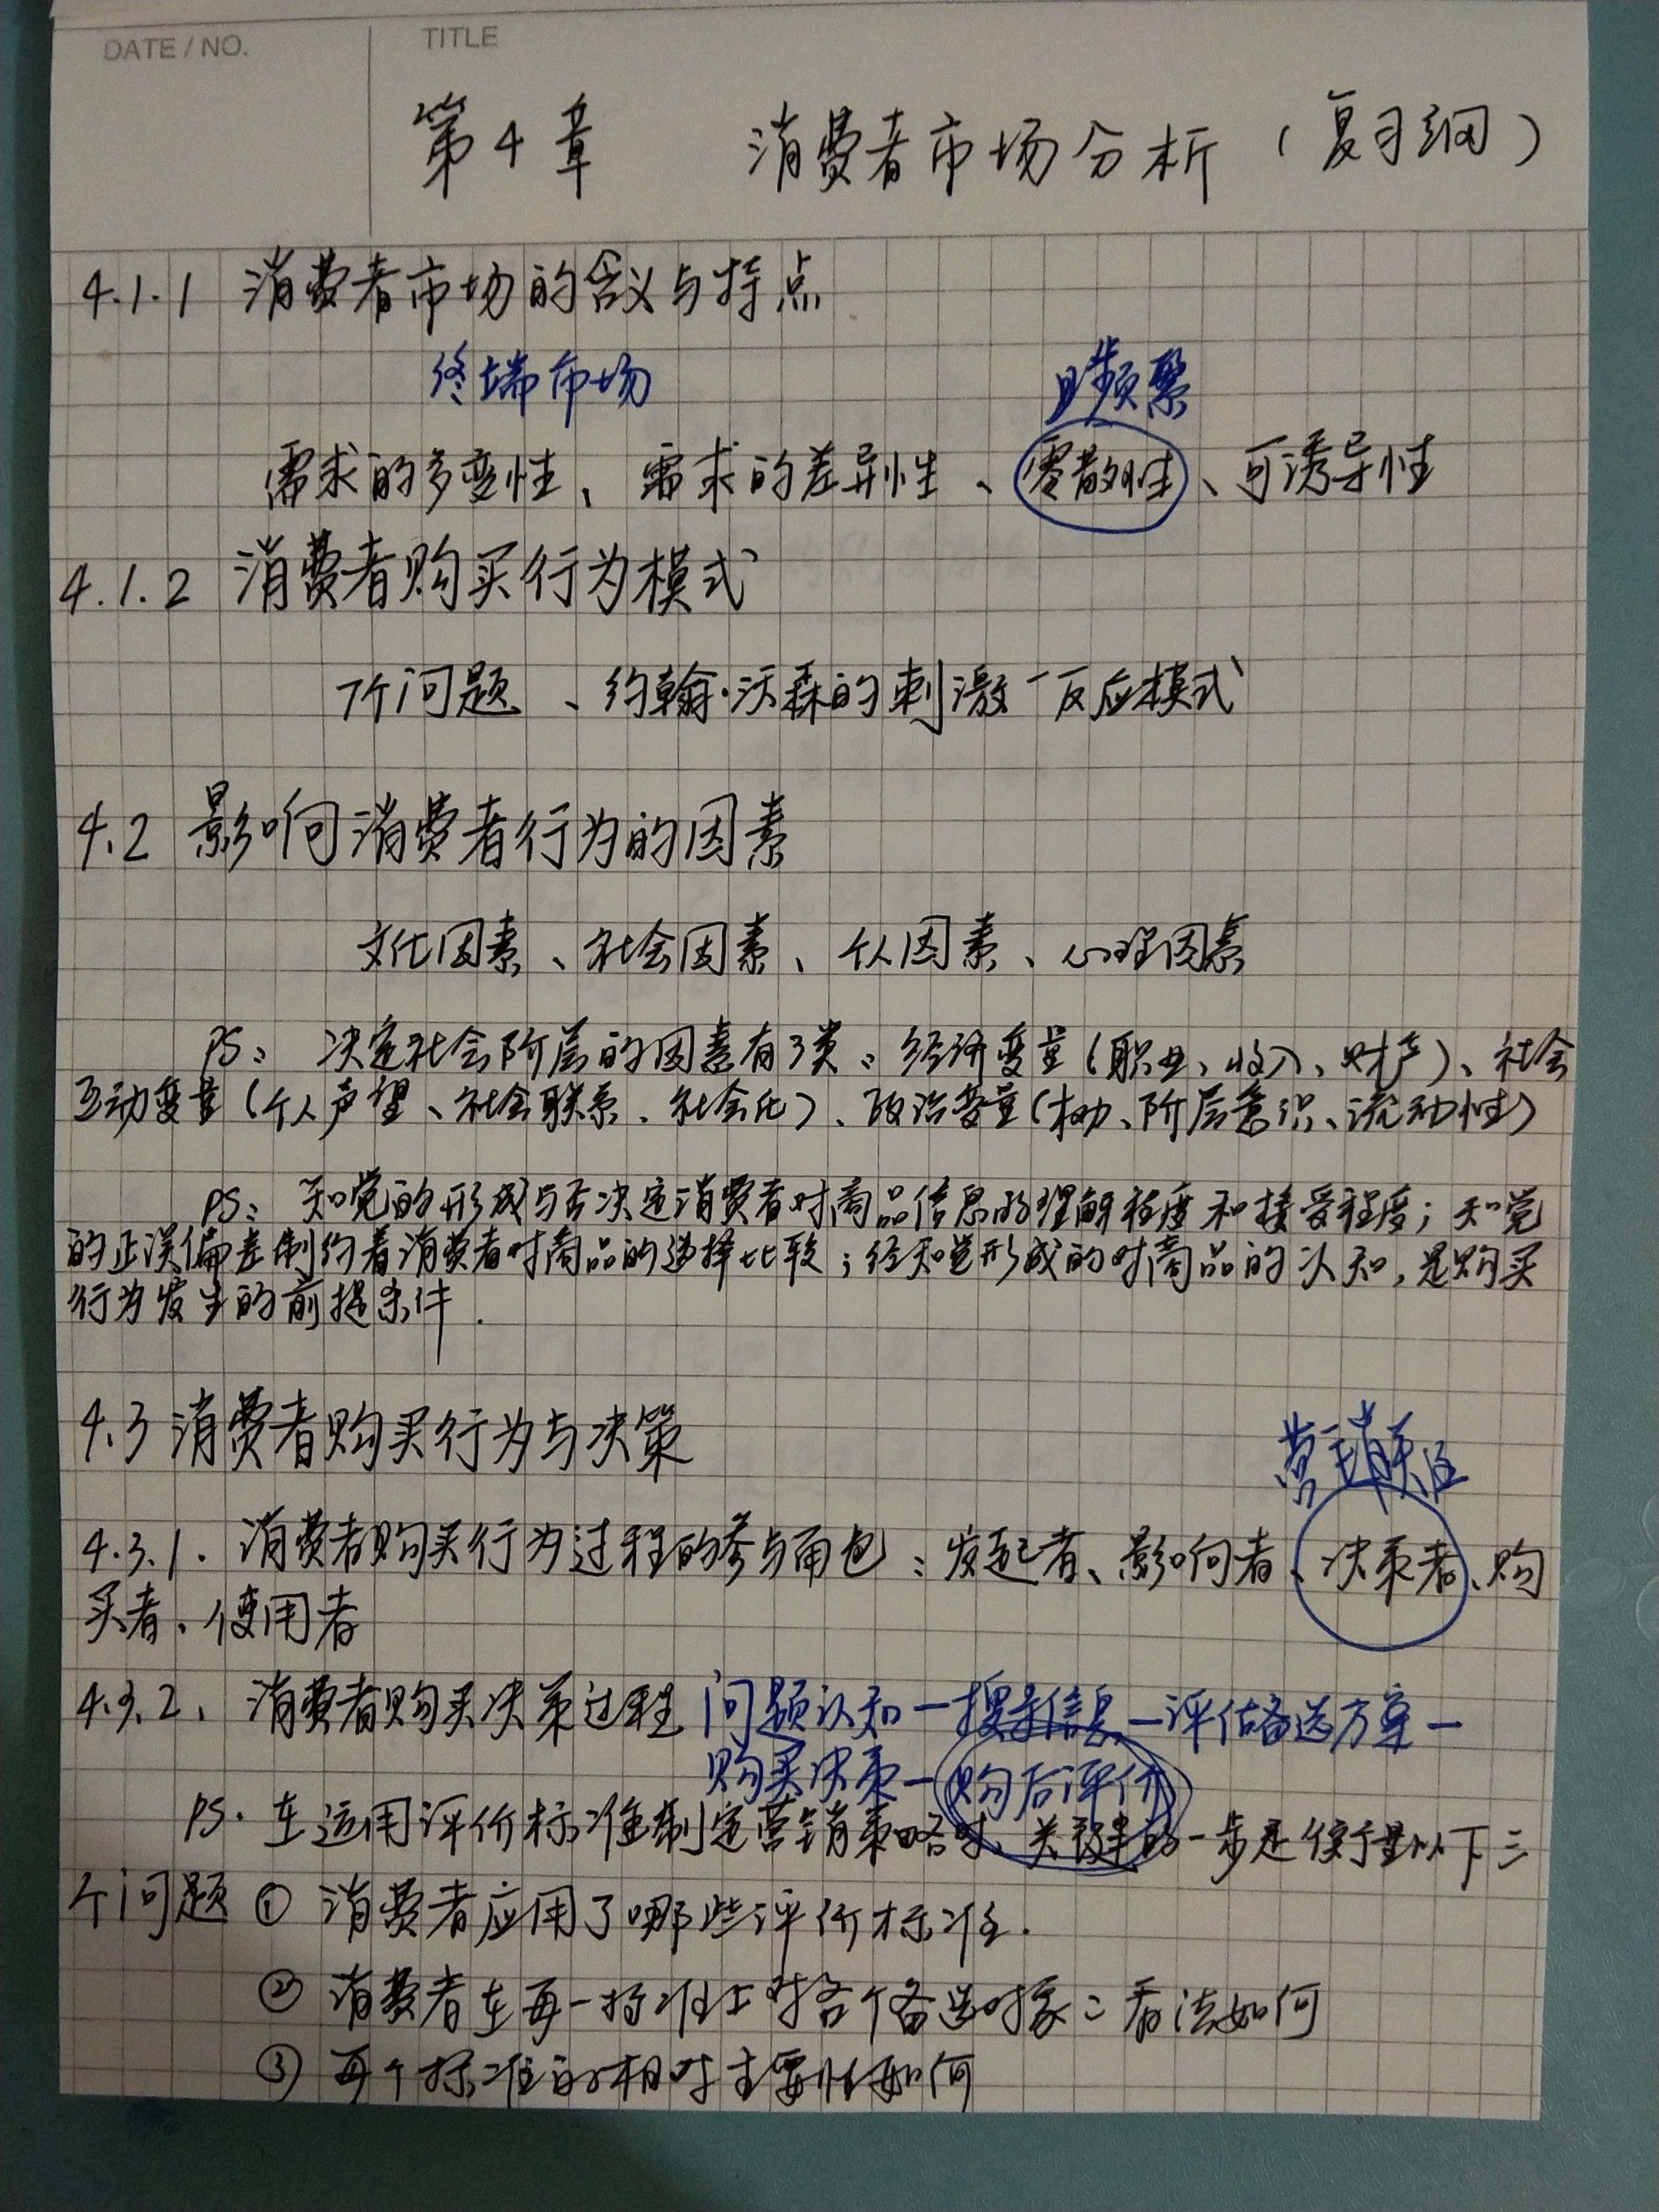 DATE / NO.
TITLE
第4章 消费者市场分析（复习纲）
4.1.1 消费者市场的含义与特点
终端市场
且频繁
需求的多变性、需求的差异性、零散性、可诱导性
4.1.2 消费者购买行为模式
7个问题、约翰·沃森的刺激—反应模式
4.2 影响消费者行为的因素
文化因素、社会因素、个人因素、心理因素
PS：决定社会阶层的因素有3类：经济变量（职业、收入、财产）、社会
互动变量（个人声望、社会联系、社会化）、政治变量（权力、阶层意识、流动性）
PS：知觉的形成与否决定消费者对商品信息的理解程度和接受程度；知觉
的正误偏差制约着消费者对商品的选择比较；经知觉形成的对商品的认知，是购买
行为发生的前提条件.
4.3 消费者购买行为与决策
营销关注
4.3.1. 消费者购买行为过程的参与角色：发起者、影响者、决策者、购
买者、使用者
4.3.2、消费者购买决策过程 问题认知—搜寻信息—评估备选方案—
购买决策—购后评价
PS. 在运用评价标准制定营销策略时、关键的一步是衡量以下三
个问题 ① 消费者应用了哪些评价标准.
② 消费者在每一标准上对各个备选对象の看法如何
③ 每个标准的相对主要性如何